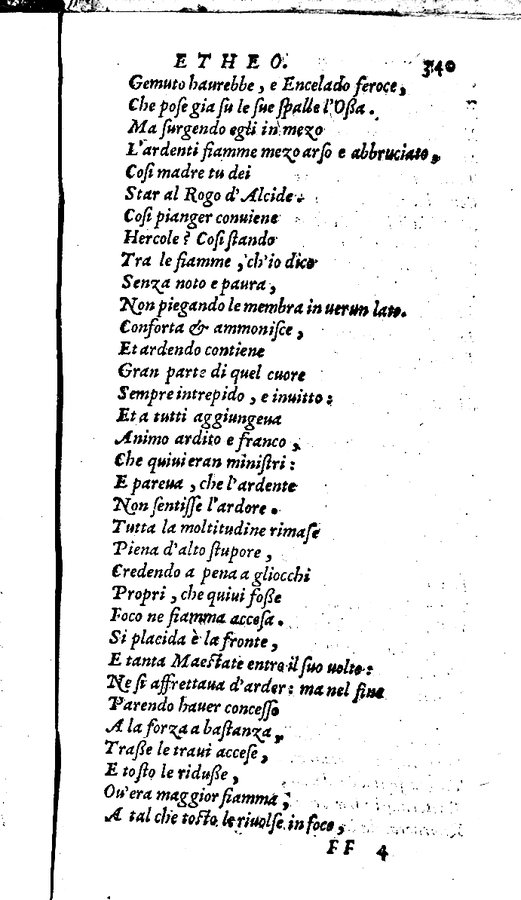 ETHEO. 340
Gemuto haurebbe, e Encelado feroce,
Che pose gia su le sue spalle l'Oßa.
Ma surgendo egli in mezo
L'ardenti fiamme mezo arso e abbruciato,
Cosi madre tu dei
Star al Rogo d'Alcide.
Cosi pianger conuiene
Hercole? Cosi stando
Tra le fiamme, ch'io dico
Senza noto e paura,
Non piegando le membra in uerun lato.
Conforta & ammonisce,
Et ardendo contiene
Gran parte di quel cuore
Sempre intrepido, e inuitto:
Et a tutti aggiungeua
Animo ardito e franco,
Che quiui eran ministri:
E pareua, che l'ardente
Non sentisse l'ardore.
Tutta la moltitudine rimase
Piena d'alto stupore,
Credendo a pena a gliocchi
Propri, che quiui foße
Foco ne fiamma accesa.
Si placida è la fronte,
E tanta Maestate entro il suo uolto:
Ne si affrettaua d'arder: ma nel fine
Parendo hauer concesso
A la forza a bastanza,
Traße le traui accese,
E tosto le riduße,
Ou'era maggior fiamma;
A tal che tosto le riuolse in foco,
FF 4